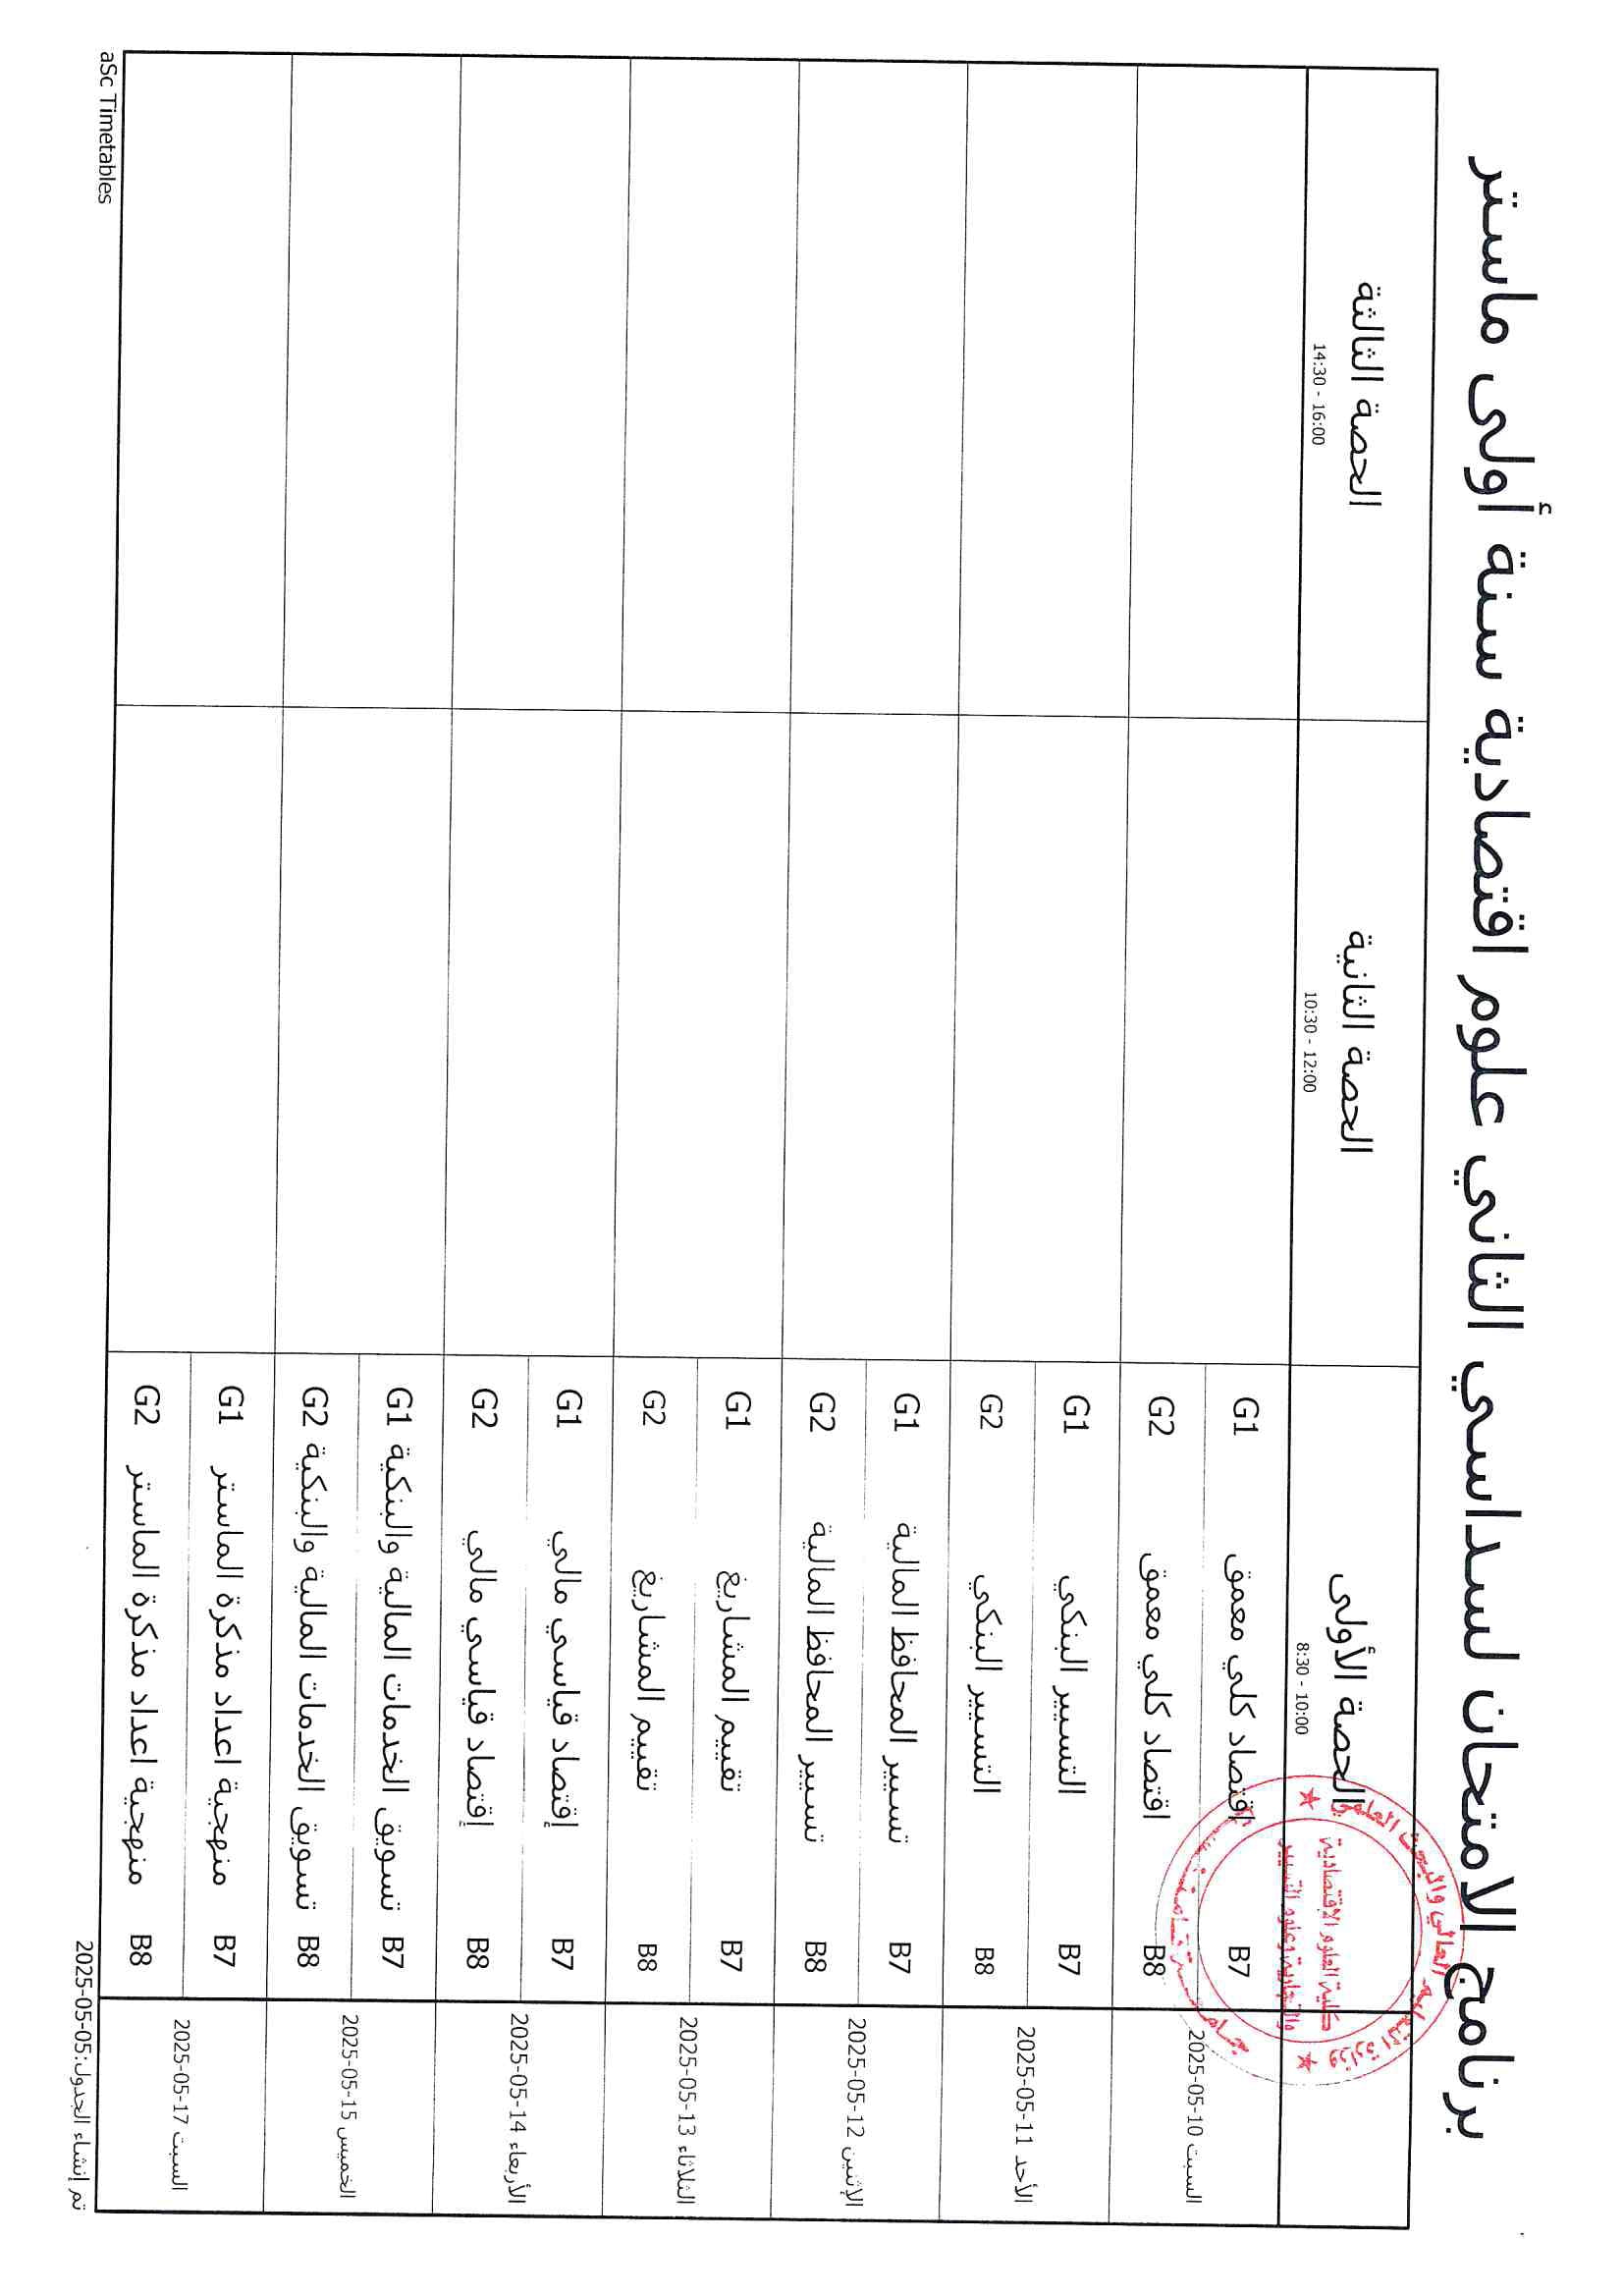 برنامج الامتحان لسداسي الثاني علوم اقتصادية سنة أولى ماستر
الحصة الأولى
8:30 - 10:00
الحصة الثانية
10:30 - 12:00
الحصة الثالثة
14:30 - 16:00
السبت 10-05-2025
B7 اقتصاد كلي معمق G1
B8 اقتصاد كلي معمق G2
الأحد 11-05-2025
B7 التسيير البنكي G1
B8 التسيير البنكي G2
الإثنين 12-05-2025
B7 تسيير المحافظ المالية G1
B8 تسيير المحافظ المالية G2
الثلاثاء 13-05-2025
B7 تقييم المشاريع G1
B8 تقييم المشاريع G2
الأربعاء 14-05-2025
B7 إقتصاد قياسي مالي G1
B8 إقتصاد قياسي مالي G2
الخميس 15-05-2025
B7 تسويق الخدمات المالية والبنكية G1
B8 تسويق الخدمات المالية والبنكية G2
السبت 17-05-2025
B7 منهجية اعداد مذكرة الماستر G1
B8 منهجية اعداد مذكرة الماستر G2
تم إنشاء الجدول:05-05-2025
aSc Timetables
وزارة التعليم العالي والبحث العلمي
كلية العلوم الإقتصادية
والتجارية وعلوم التسيير